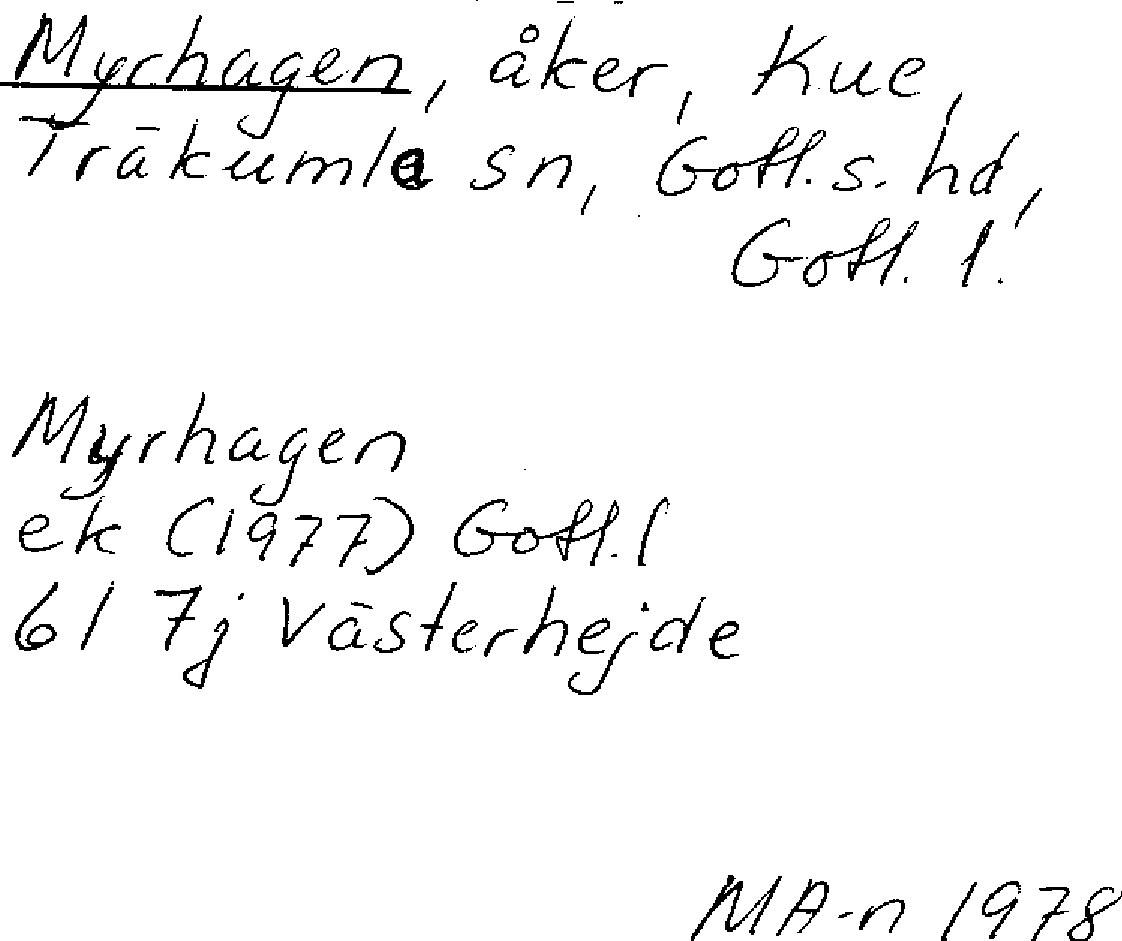 Myrhagen, åker, Kue,
Träkumla sn, Gotl. s. hd,
Gotl. l.
Myrhagen
ek (1977) Gotl. l
6I 7j Västerhejde
MA-n 1978